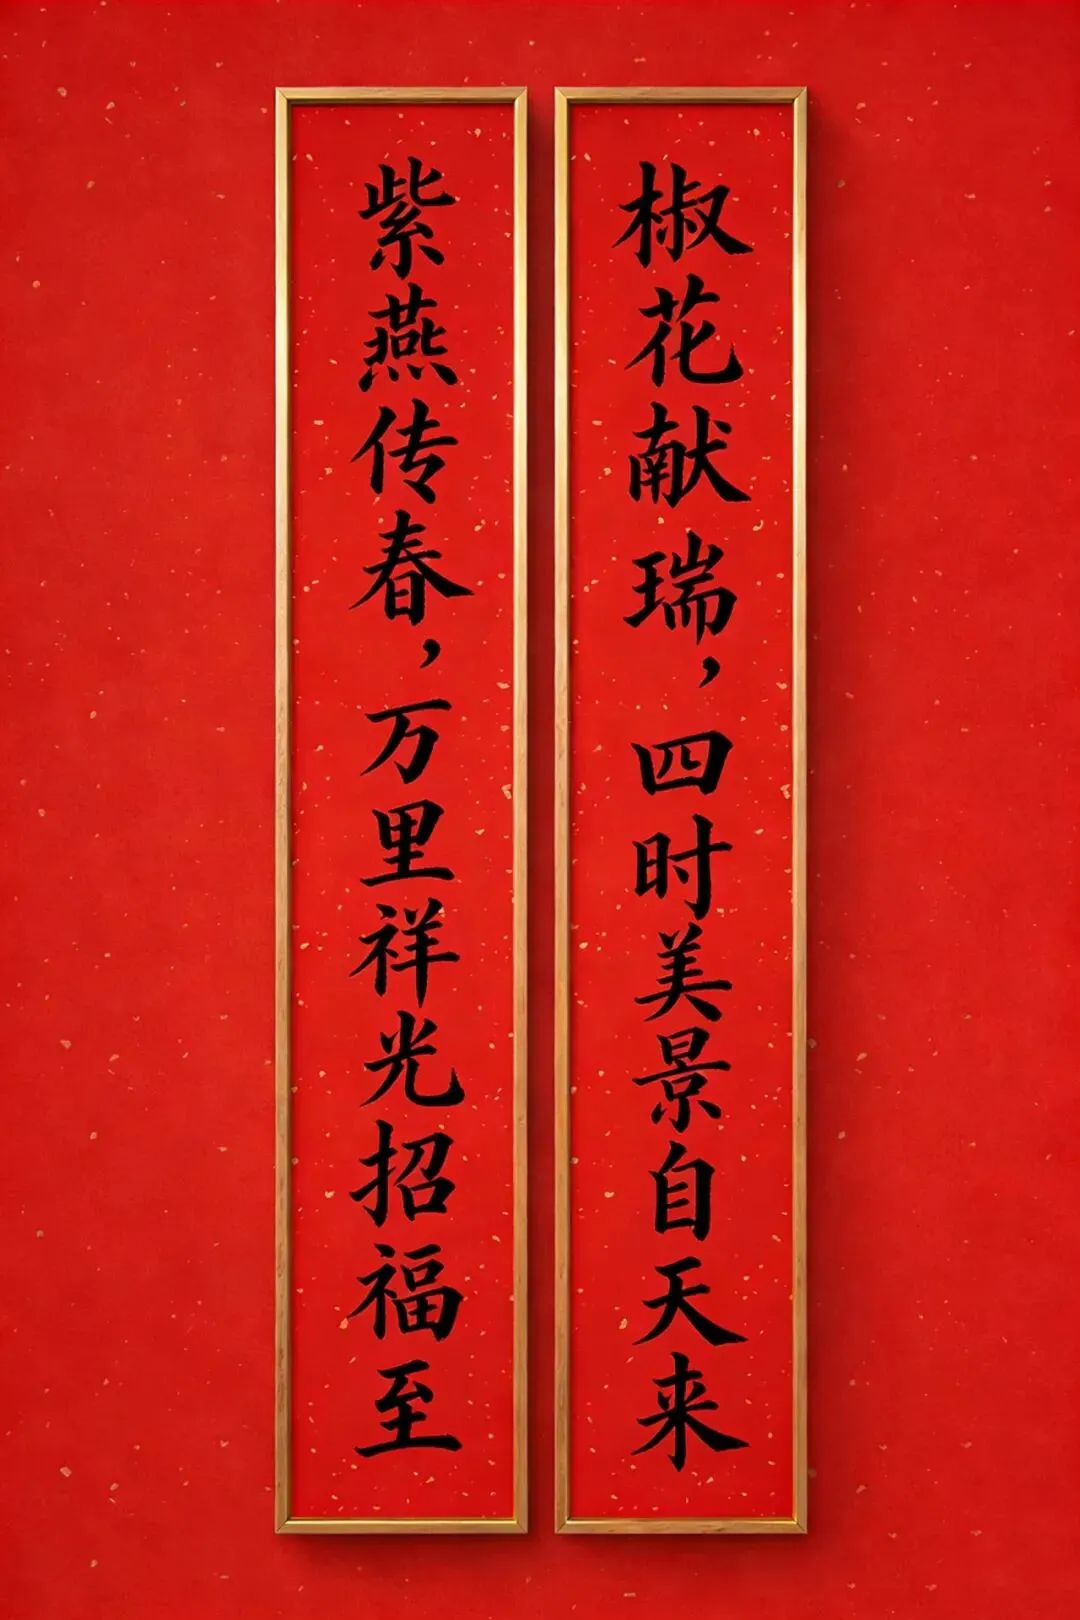 椒花献瑞，四时美景自天来
紫燕传春，万里祥光招福至